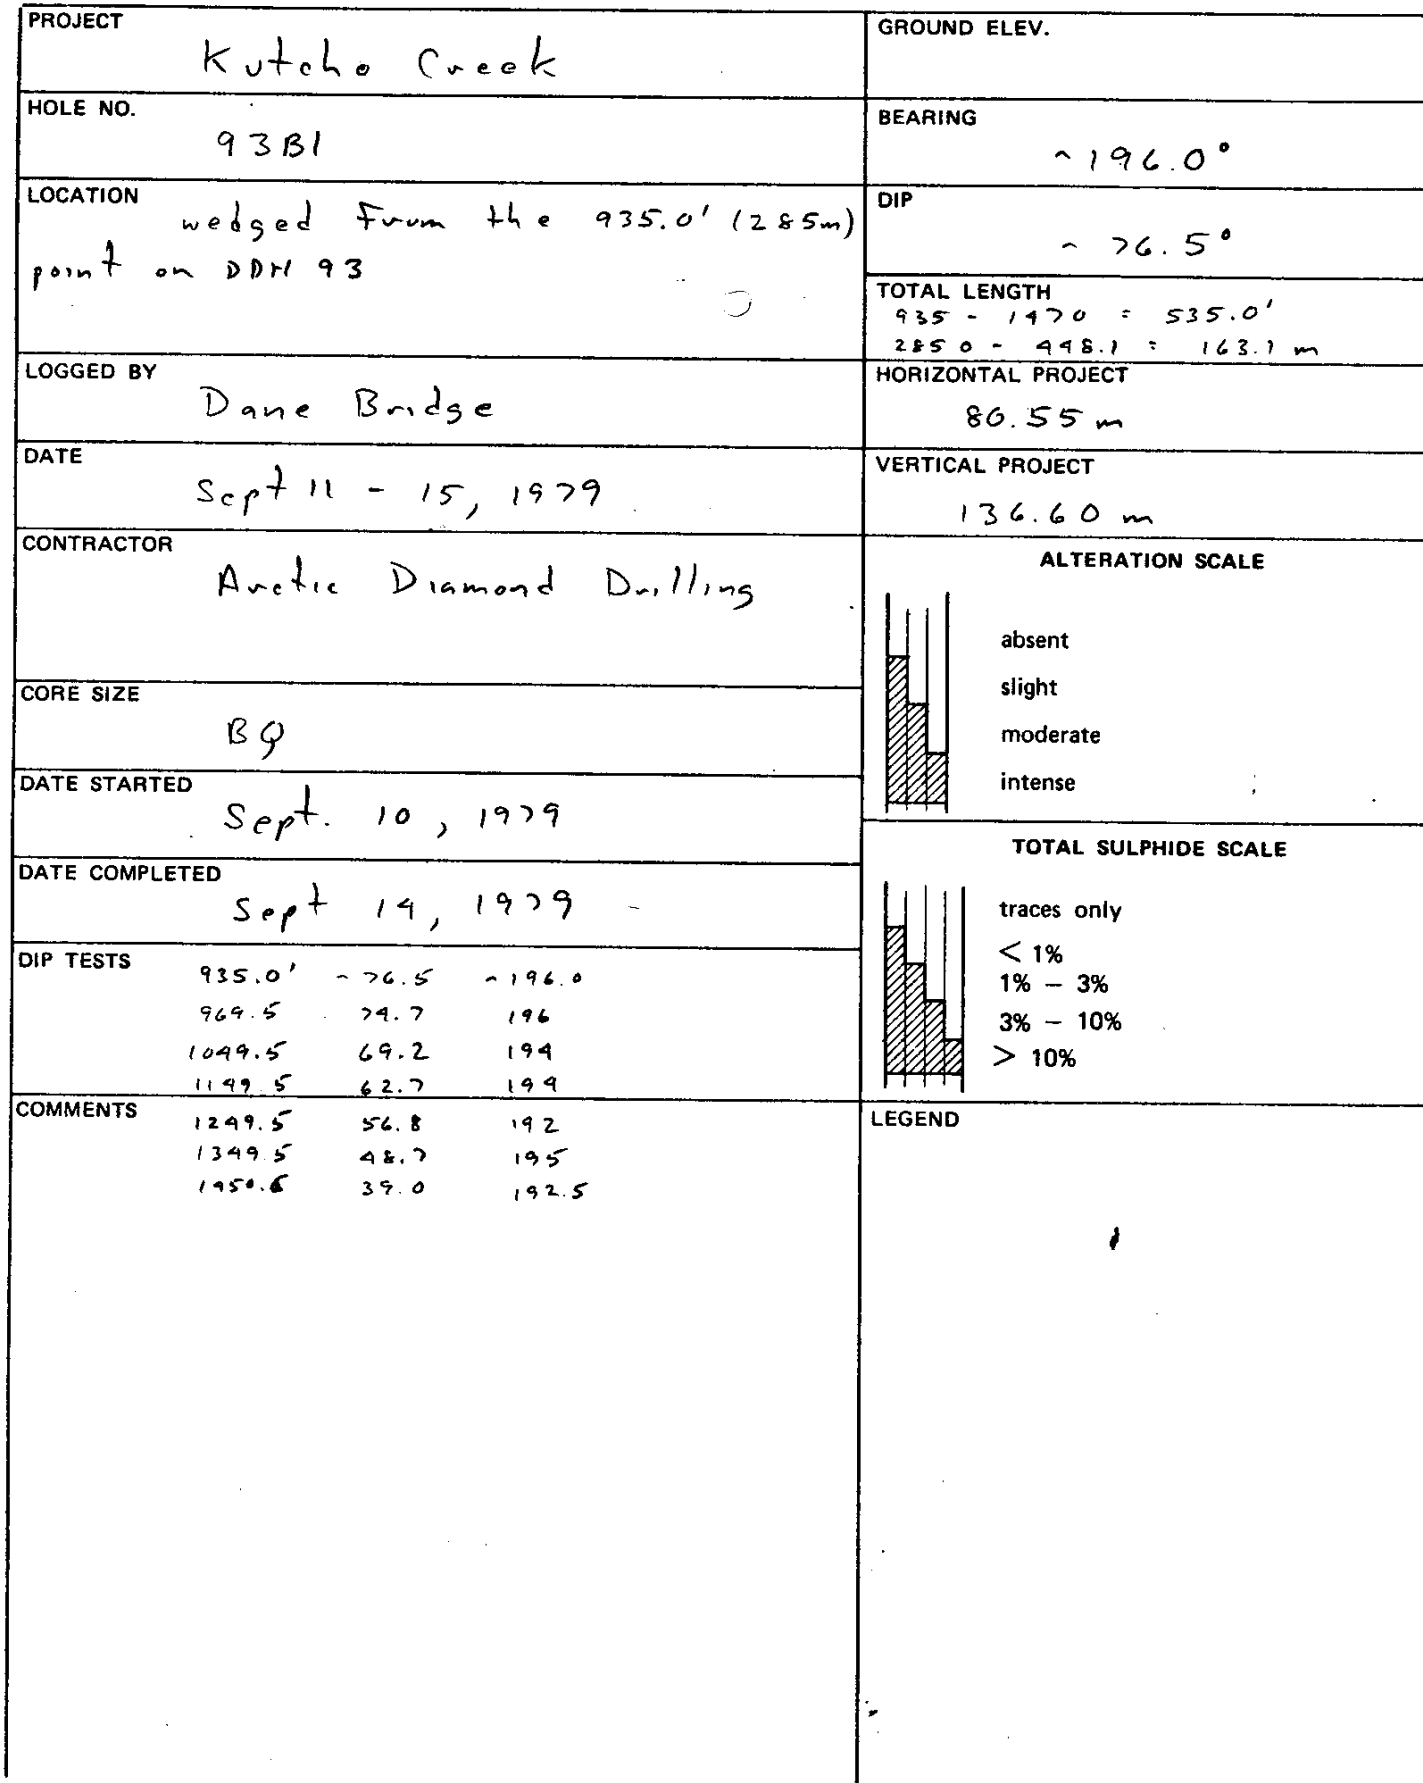 PROJECT
Kutcho Creek
HOLE NO.
93B1
LOCATION
wedged From the 935.0' (285m)
point on DDH 93
LOGGED BY
Dane Bridge
DATE
Sept 11 - 15, 1979
CONTRACTOR
Arctic Diamond Drilling
CORE SIZE
BQ
DATE STARTED
Sept. 10, 1979
DATE COMPLETED
Sept 14, 1979
DIP TESTS
935.0' ~76.5 ~196.0
969.5 74.7 196
1049.5 69.2 194
1149.5 62.7 194
COMMENTS
1249.5 56.8 192
1349.5 48.7 195
1450.5 39.0 192.5
GROUND ELEV.
BEARING
~196.0°
DIP
~ 76.5°
TOTAL LENGTH
935 - 1470 = 535.0'
285 0 - 448.1 = 163.1 m
HORIZONTAL PROJECT
80.55 m
VERTICAL PROJECT
136.60 m
ALTERATION SCALE
absent
slight
moderate
intense
TOTAL SULPHIDE SCALE
traces only
< 1%
1% – 3%
3% – 10%
> 10%
LEGEND